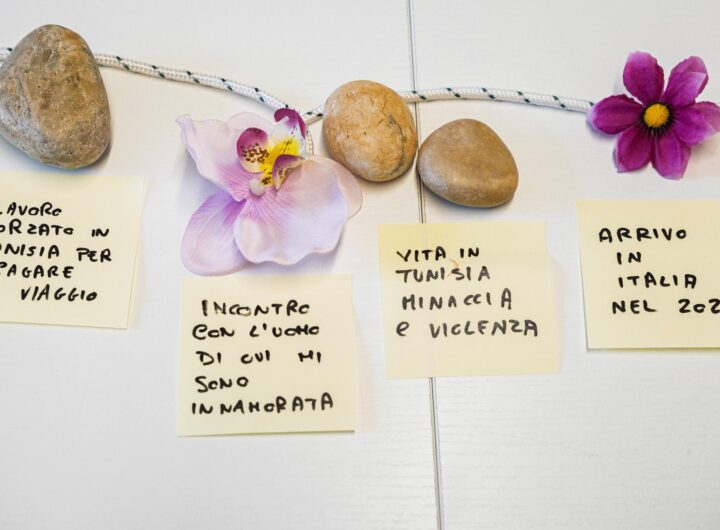 LAVORO
ORZATO IN
NISIA PER
PAGARE
VIAGGIO
INCONTRO
CON L'UOMO
DI CUI MI
SONO
INNAMORATA
VITA IN
TUNISIA
MINACCIA
e VIOLENZA
ARRIVO
IN
ITALIA
NEL 202